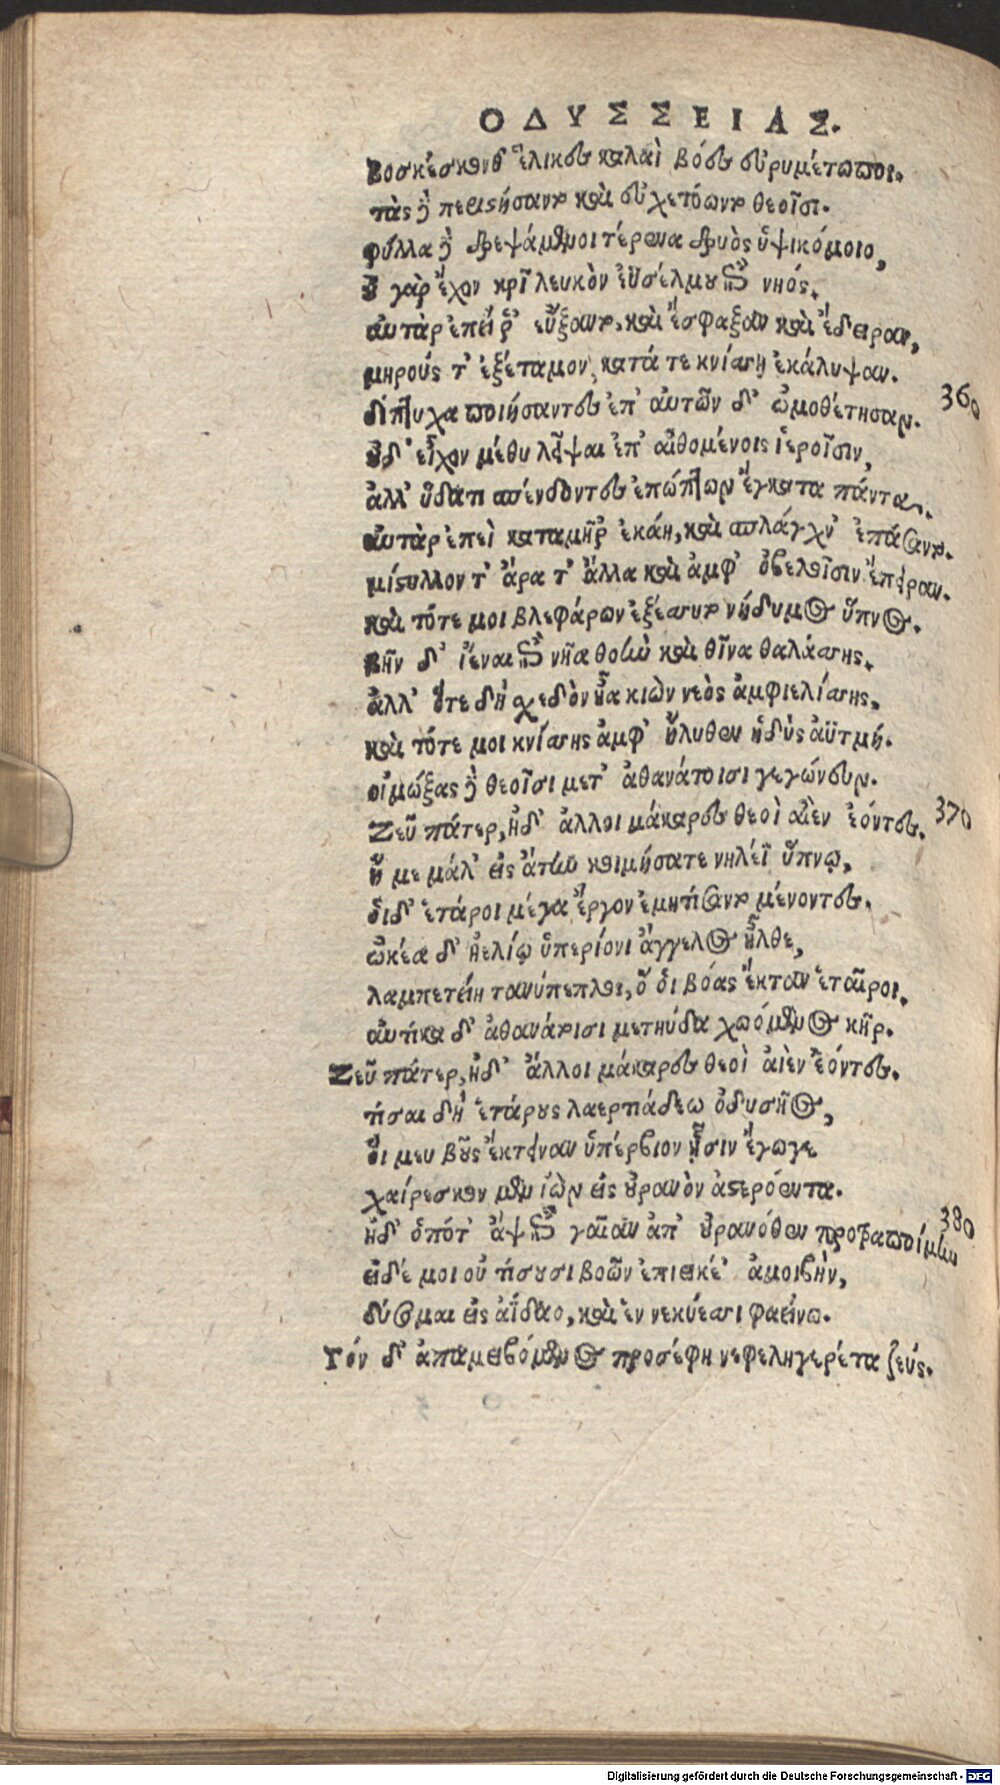 ΟΔΥΣΣΕΙΑΣ.
Βοσκέσκονθ᾽ ἕλικες καλαὶ βόες εὐρυμέτωποι.
τὰς δὲ περιστήσαντο καὶ εὐχετόωντο θεοῖσι.
φύλλα δὲ δρεψάμενοι τέρενα δρυὸς ὑψικόμοιο,
οὐ γὰρ ἔχον κρῖ λευκὸν ἐϋσέλμου ἐπὶ νηός.
αὐτὰρ ἐπεί ῥ᾽ εὔξαντο, καὶ ἔσφαξαν καὶ ἔδειραν,
μηρούς τ᾽ ἐξέταμον, κατά τε κνίσση ἐκάλυψαν.
δίπτυχα ποιήσαντες ἐπ᾽ αὐτῶν δ᾽ ὠμοθέτησαν. 360
οὐδ᾽ εἶχον μέθυ λεῖψαι ἐπ᾽ αἰθομένοις ἱεροῖσιν,
ἀλλ᾽ ὕδατι σπένδοντες ἐπώπτων ἔγκατα πάντα.
αὐτὰρ ἐπεὶ κατὰ μῆρ᾽ ἐκάη, καὶ σπλάγχν᾽ ἐπάσαντο.
μίστυλλον τ᾽ ἄρα τ᾽ ἄλλα καὶ ἀμφ᾽ ὀβελοῖσιν ἔπειραν.
καὶ τότε μοι βλεφάρων ἐξέσσυτο νήδυμος ὕπνος.
βῆν δ᾽ ἰέναι ἐπὶ νῆα θοὴν καὶ θῖνα θαλάσσης.
ἀλλ᾽ ὅτε δὴ σχεδὸν ἦα κιὼν νεὸς ἀμφιελίσσης,
καὶ τότε μοι κνίσσης ἀμφ᾽ ἤλυθεν ἡδὺς ἀϋτμή.
οἰμώξας δὲ θεοῖσι μετ᾽ ἀθανάτοισι γεγώνευν.
Ζεῦ πάτερ, ἠδ᾽ ἄλλοι μάκαρες θεοὶ αἰὲν ἐόντες. 370
ἦ με μάλ᾽ εἰς ἄτην κοιμήσατε νηλέϊ ὕπνῳ,
οἱ δ᾽ ἕταροι μέγα ἔργον ἐμητίσαντο μένοντες.
ὠκέα δ᾽ ἠελίῳ ὑπερίονι ἄγγελος ἦλθε,
λαμπετείη τανύπεπλοι, ὅ οἱ βόας ἔκταν ἑταῖροι.
αὐτίκα δ᾽ ἀθανάτοισι μετηύδα χωόμενος κῆρ.
Ζεῦ πάτερ, ἠδ᾽ ἄλλοι μάκαρες θεοὶ αἰὲν ἐόντες.
τῖσαι δὴ ἑτάρους λαερτιάδεω ὀδυσῆος,
οἵ μευ βοῦς ἔκτειναν ὑπέρβιον ᾗσιν ἔγωγε
χαίρεσκον μὲν ἰὼν εἰς οὐρανὸν ἀστερόεντα.
ἠδ᾽ ὁπότ᾽ ἂψ ἐπὶ γαῖαν ἀπ᾽ οὐρανόθεν προτραποίμην 380
εἰ δέ μοι οὐ τίσουσι βοῶν ἐπιεικέ᾽ ἀμοιβὴν,
δύσομαι εἰς ἀΐδαο, καὶ ἐν νεκύεσσι φαείνω.
Τὸν δ᾽ ἀπαμειβόμενος προσέφη νεφεληγερέτα ζεύς.
Digitalisierung gefördert durch die Deutsche Forschungsgemeinschaft - DFG